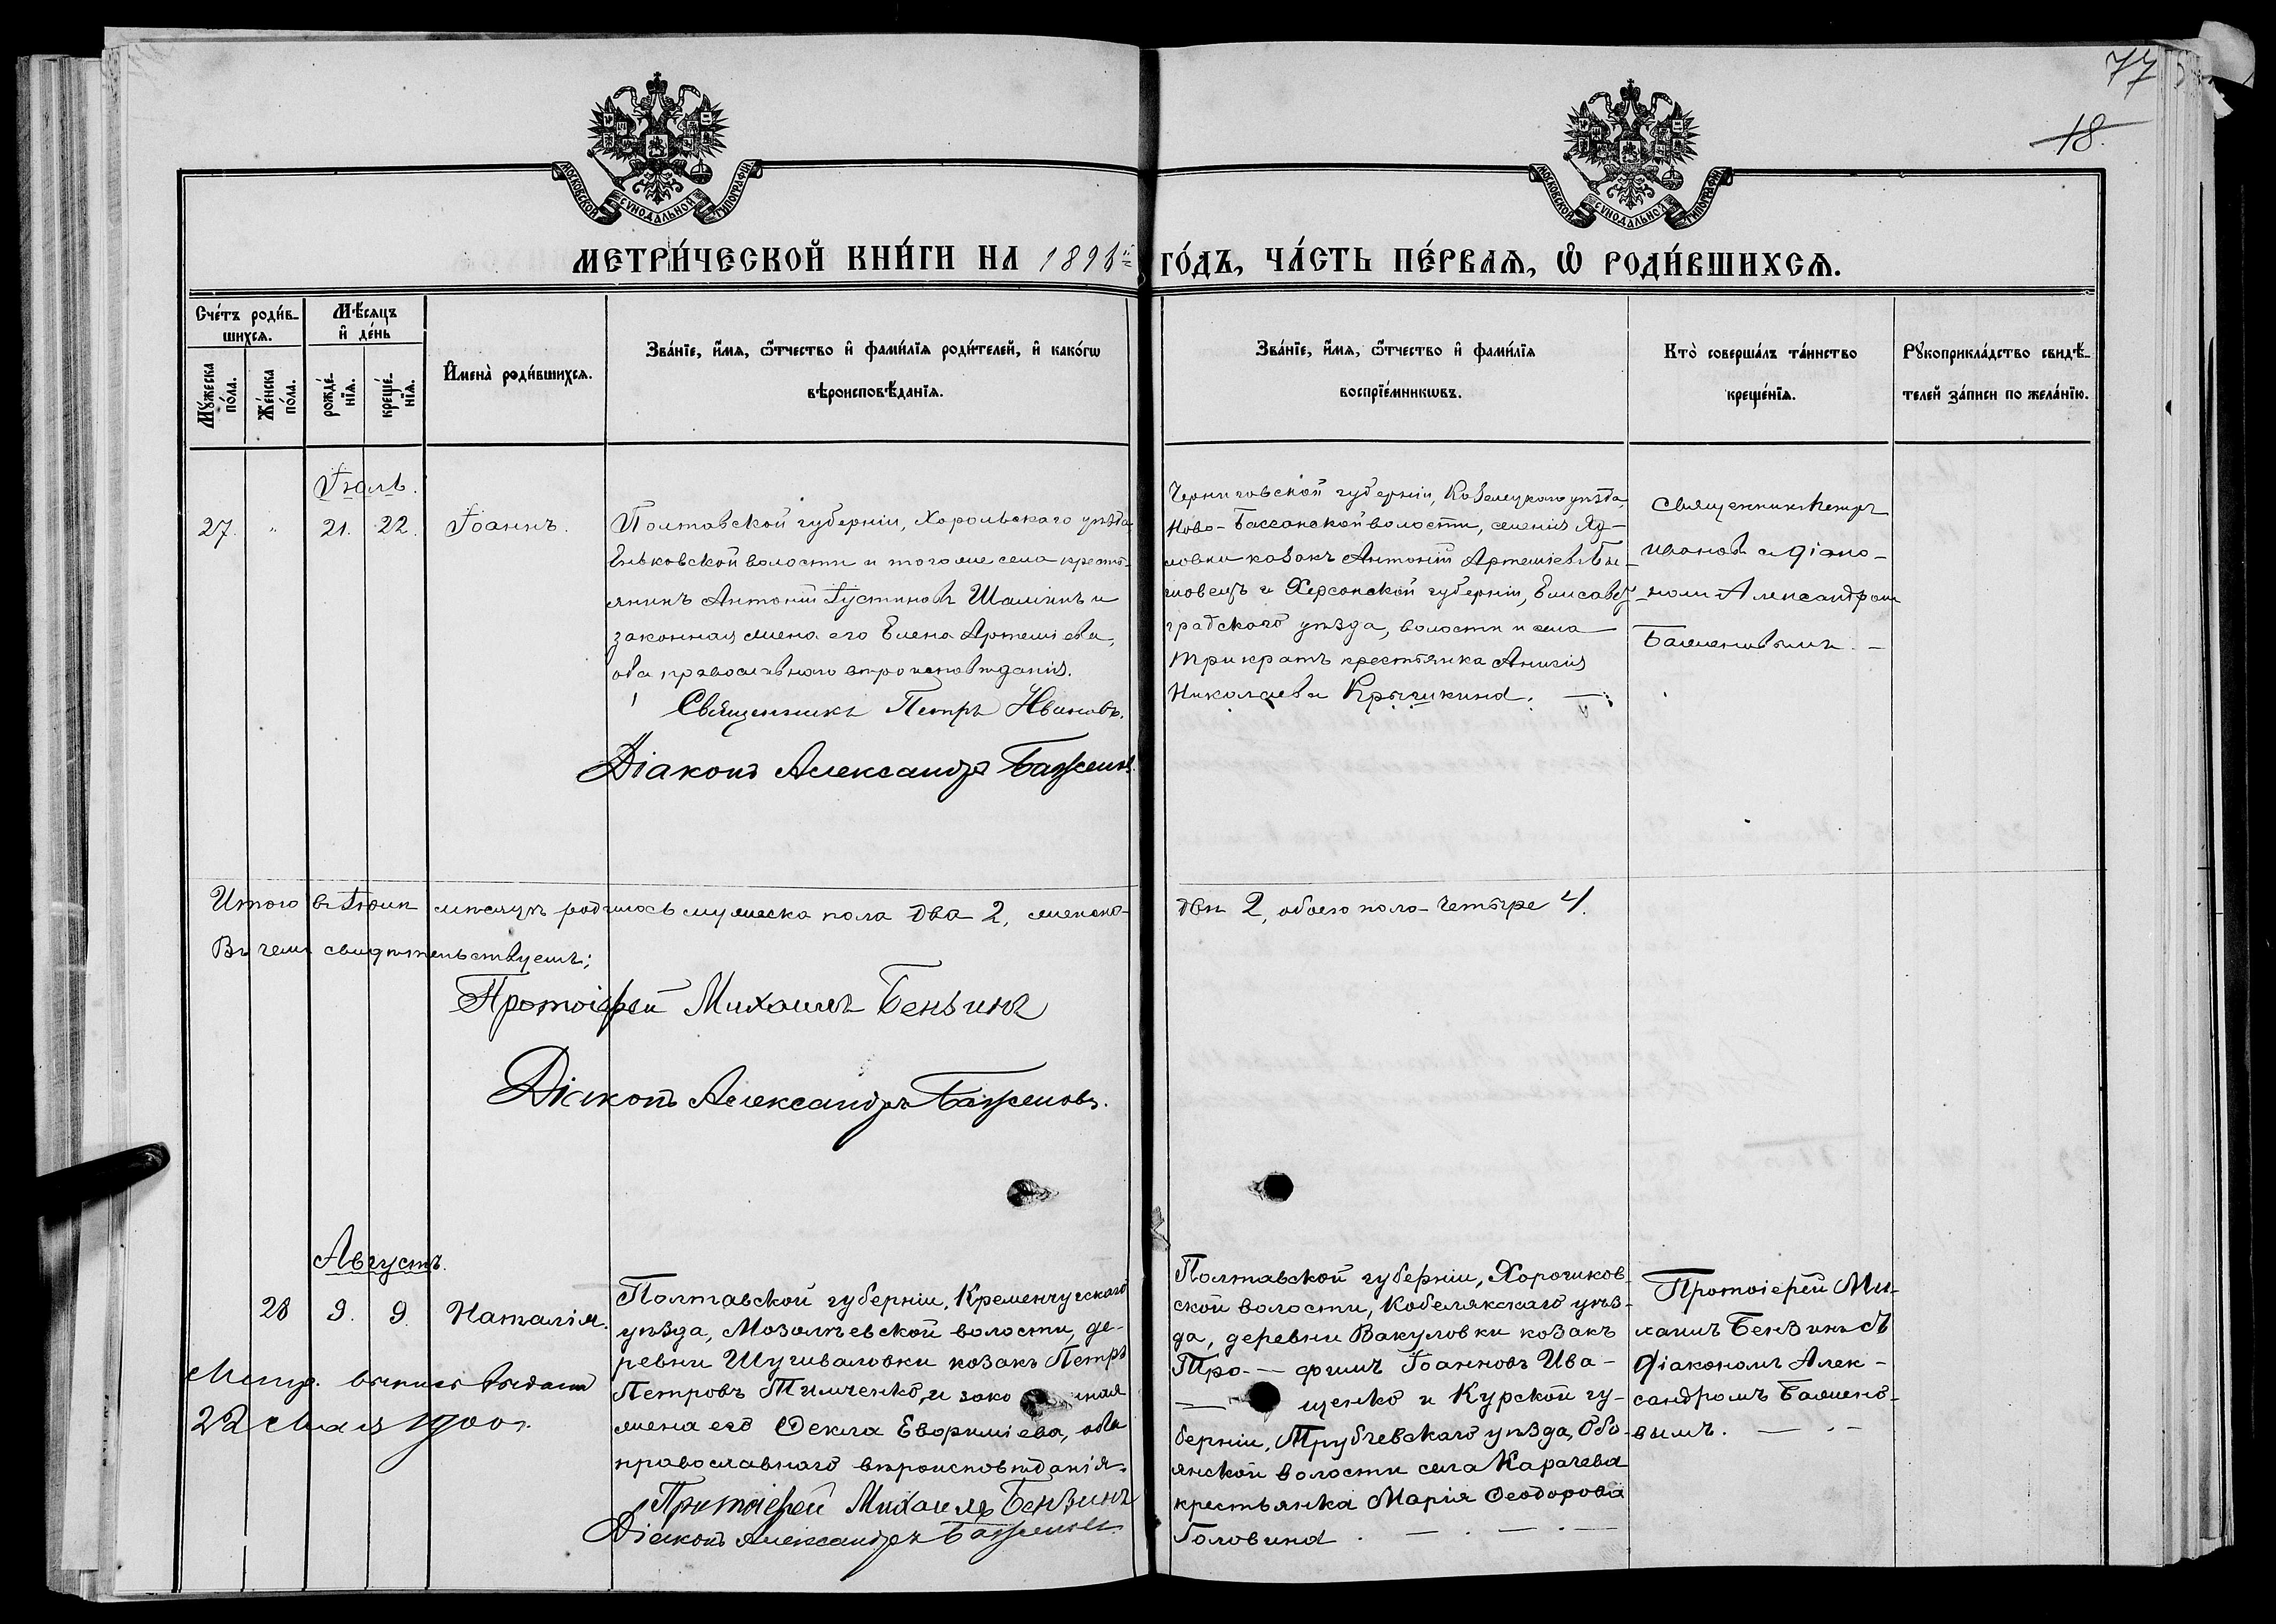 77
18.
МОСКОВСКОЙ СѴНОДАЛЬНОЙ ТИПОГРАФІИ
МОСКОВСКОЙ СѴНОДАЛЬНОЙ ТИПОГРАФІИ
МЕТРИ́ЧЕСКОЙ КНИ́ГИ НА 1898й ГО́ДЪ, ЧА́СТЬ ПЕ́РВАѦ, Ѡ҆ РОДИ́ВШИХСѦ.
Сче́тъ роди́в-
шихсѧ.
Мꙋ́жеска по́ла.
Же́нска по́ла.
Мѣ́сѧцъ
и҆ де́нь
рожде́-нїѧ.
креще́-нїѧ.
И҆мена̀ роди́вшихсѧ.
Зва́нїе, и҆́мѧ, ѻ҆́тчество и҆ фами́лїѧ роди́телей, и҆ како́гѡ
вѣроисповѣ́данїѧ.
Зва́нїе, и҆́мѧ, ѻ҆́тчество и҆ фами́лїѧ
воспрїе́мникѡвъ.
Кто̀ соверша́лъ та́инство
креще́нїѧ.
Рꙋкоприкла́дство свидѣ́-
телей за́писи по жела́нїю.
Іюль.
27. " 21. 22. Іоаннъ.
Полтавской губерніи, Хорольскаго уѣзда,
Еньковской волости и тогоже села кресть-
янинъ Антоній Іустиновъ Шалинъ и
законная жена его Елена Артеміева,
оба православнаго вѣроисповѣданія.
Священникъ Петръ Ивановъ.
Діаконъ Александръ Баженовъ.
Черниговской губерніи, Козелецкаго уѣзда,
Ново-Бассанской волости, селенія Яд-
ловки казакъ Антоній Артеміевъ
и Херсонской губерніи, Елисавет-
градскаго уѣзда, волости и села
Трикратъ крестьянка
Николаева Крышкина.
Священникъ Петръ
Ивановъ с діако-
номъ Александромъ
Баженовымъ. -
Итого въ Іюлѣ мѣсяцѣ родилось мужеска пола два 2, женска-
двѣ 2, обоего пола- четыре 4.
Въ чемъ свидѣтельствуемъ;
Протоіерей Михаилъ Бензинъ
Діаконъ Александръ Баженовъ.
Августъ.
28 9. 9. Наталія.
Полтавской губерніи, Кременчугскаго
уѣзда, Мозолѣевской волости, де-
ревни Шушваловки козакъ Петръ
Петровъ Тимченко, и зако нная
жена его Ѳекла Евфиміева, оба
православнаго вѣроисповѣданія.
Протоіерей Михаилъ Бензинъ
Діаконъ Александръ Баженовъ.
Метр. выпись выдана
22 Мая 1900 г.
Полтавской губерніи, Хорошков-
ской волости, Кобелякскаго уѣз-
да, деревни Вакуловки козакъ
Тро-- фимъ Іоанновъ Ива-
щенко и Курской гу-
берніи, Трубчевскаго уѣзда, Обо-
янской волости села Карачева
крестьянка Марія Ѳеодорова
Головина.
Протоіерей Ми-
хаилъ Бензинъ съ
діакономъ Алек-
сандромъ Баженo-
вымъ.